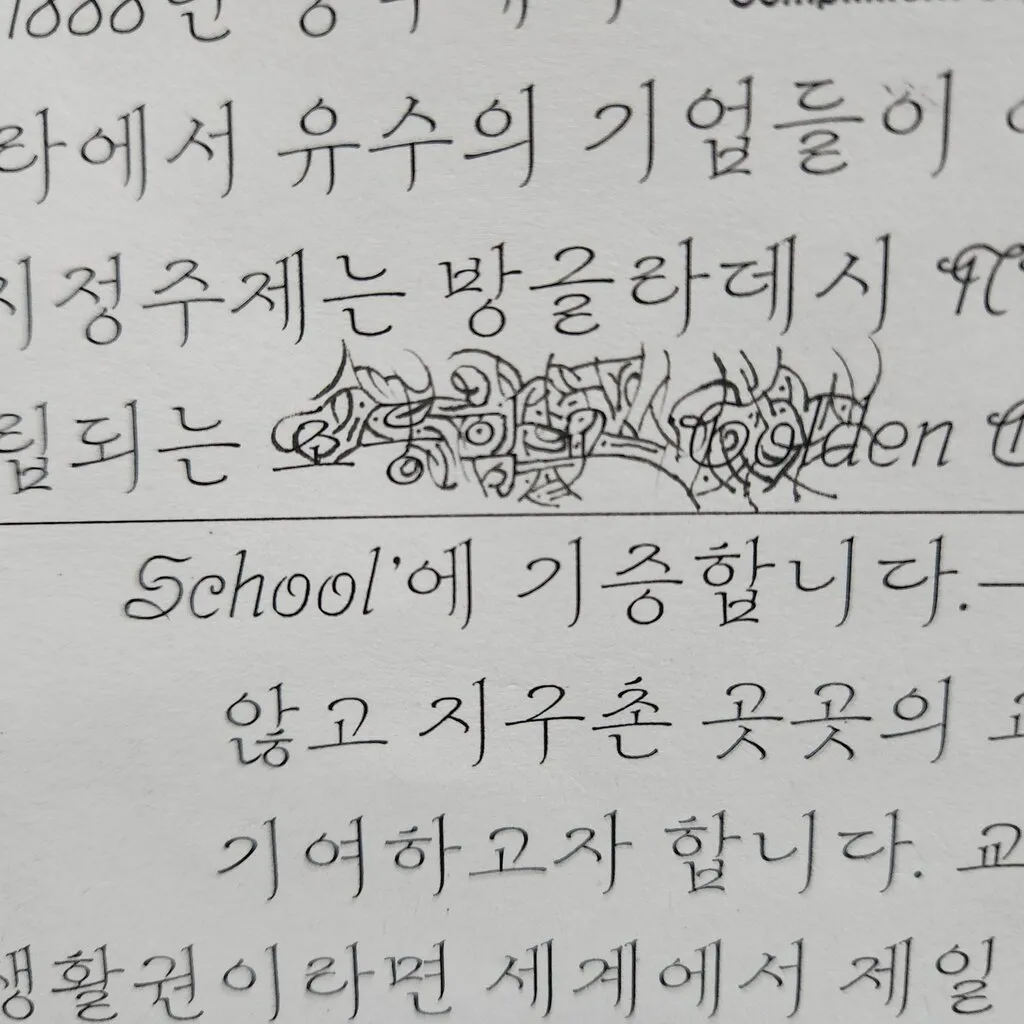 라에서 유수의 기업들이
지정주제는 방글라데시
립되는 Golden
School'에 기증합니다.-
않고 지구촌 곳곳의
기여하고자 합니다. 교
생활권이라면 세계에서 제일